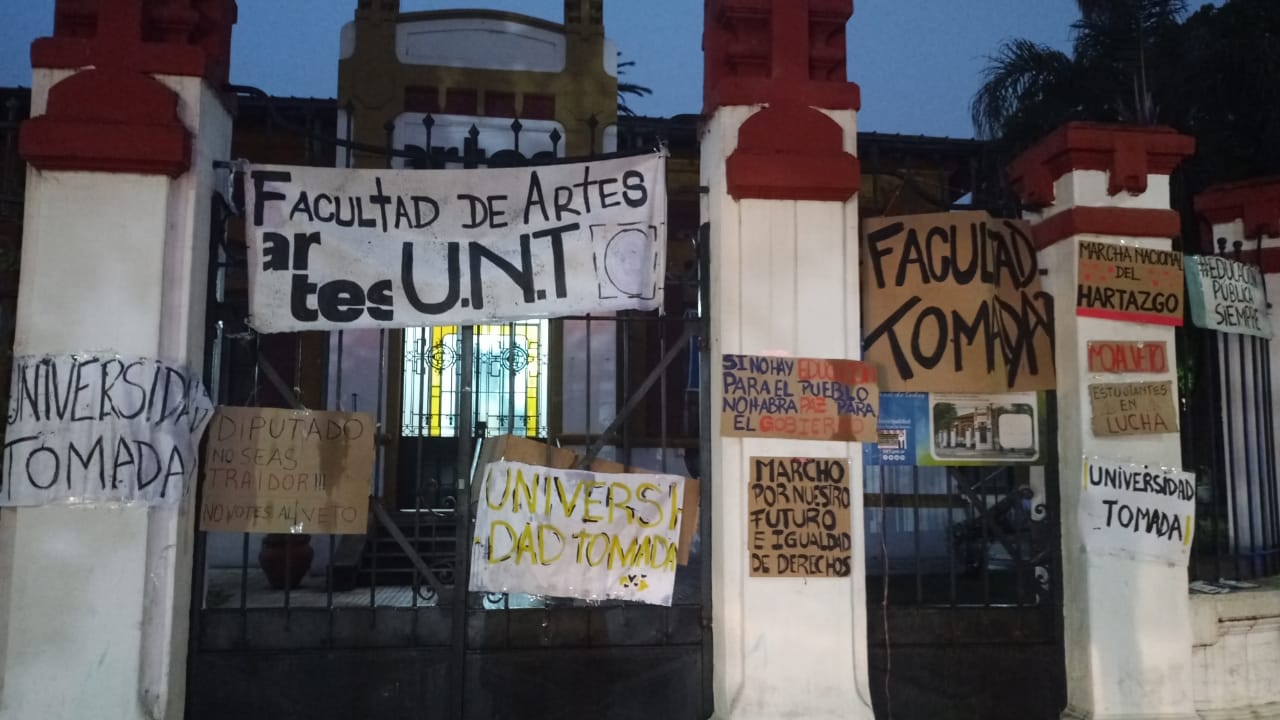 artes
FACULTAD DE ARTES
ar
tes U.N.T
UNIVERSIDAD
TOMADA
DIPUTADO
NO SEAS
TRAIDOR!!!
NO VOTES AL VETO
UNIVERSI
-DAD TOMADA
SI NO HAY EDUCACION
PARA EL PUEBLO
NO HABRA PAZ PARA
EL GOBIERNO
MARCHO
POR NUESTRO
FUTURO
E IGUALDAD
DE DERECHOS
FACULTAD
TOMADA
MARCHA NACIONAL
DEL
HARTAZGO
#EDUCACIÓN
PÚBLICA
SIEMPRE
NO AL VETO
ESTUDIANTES
EN
LUCHA
¡UNIVERSIDAD
TOMADA!